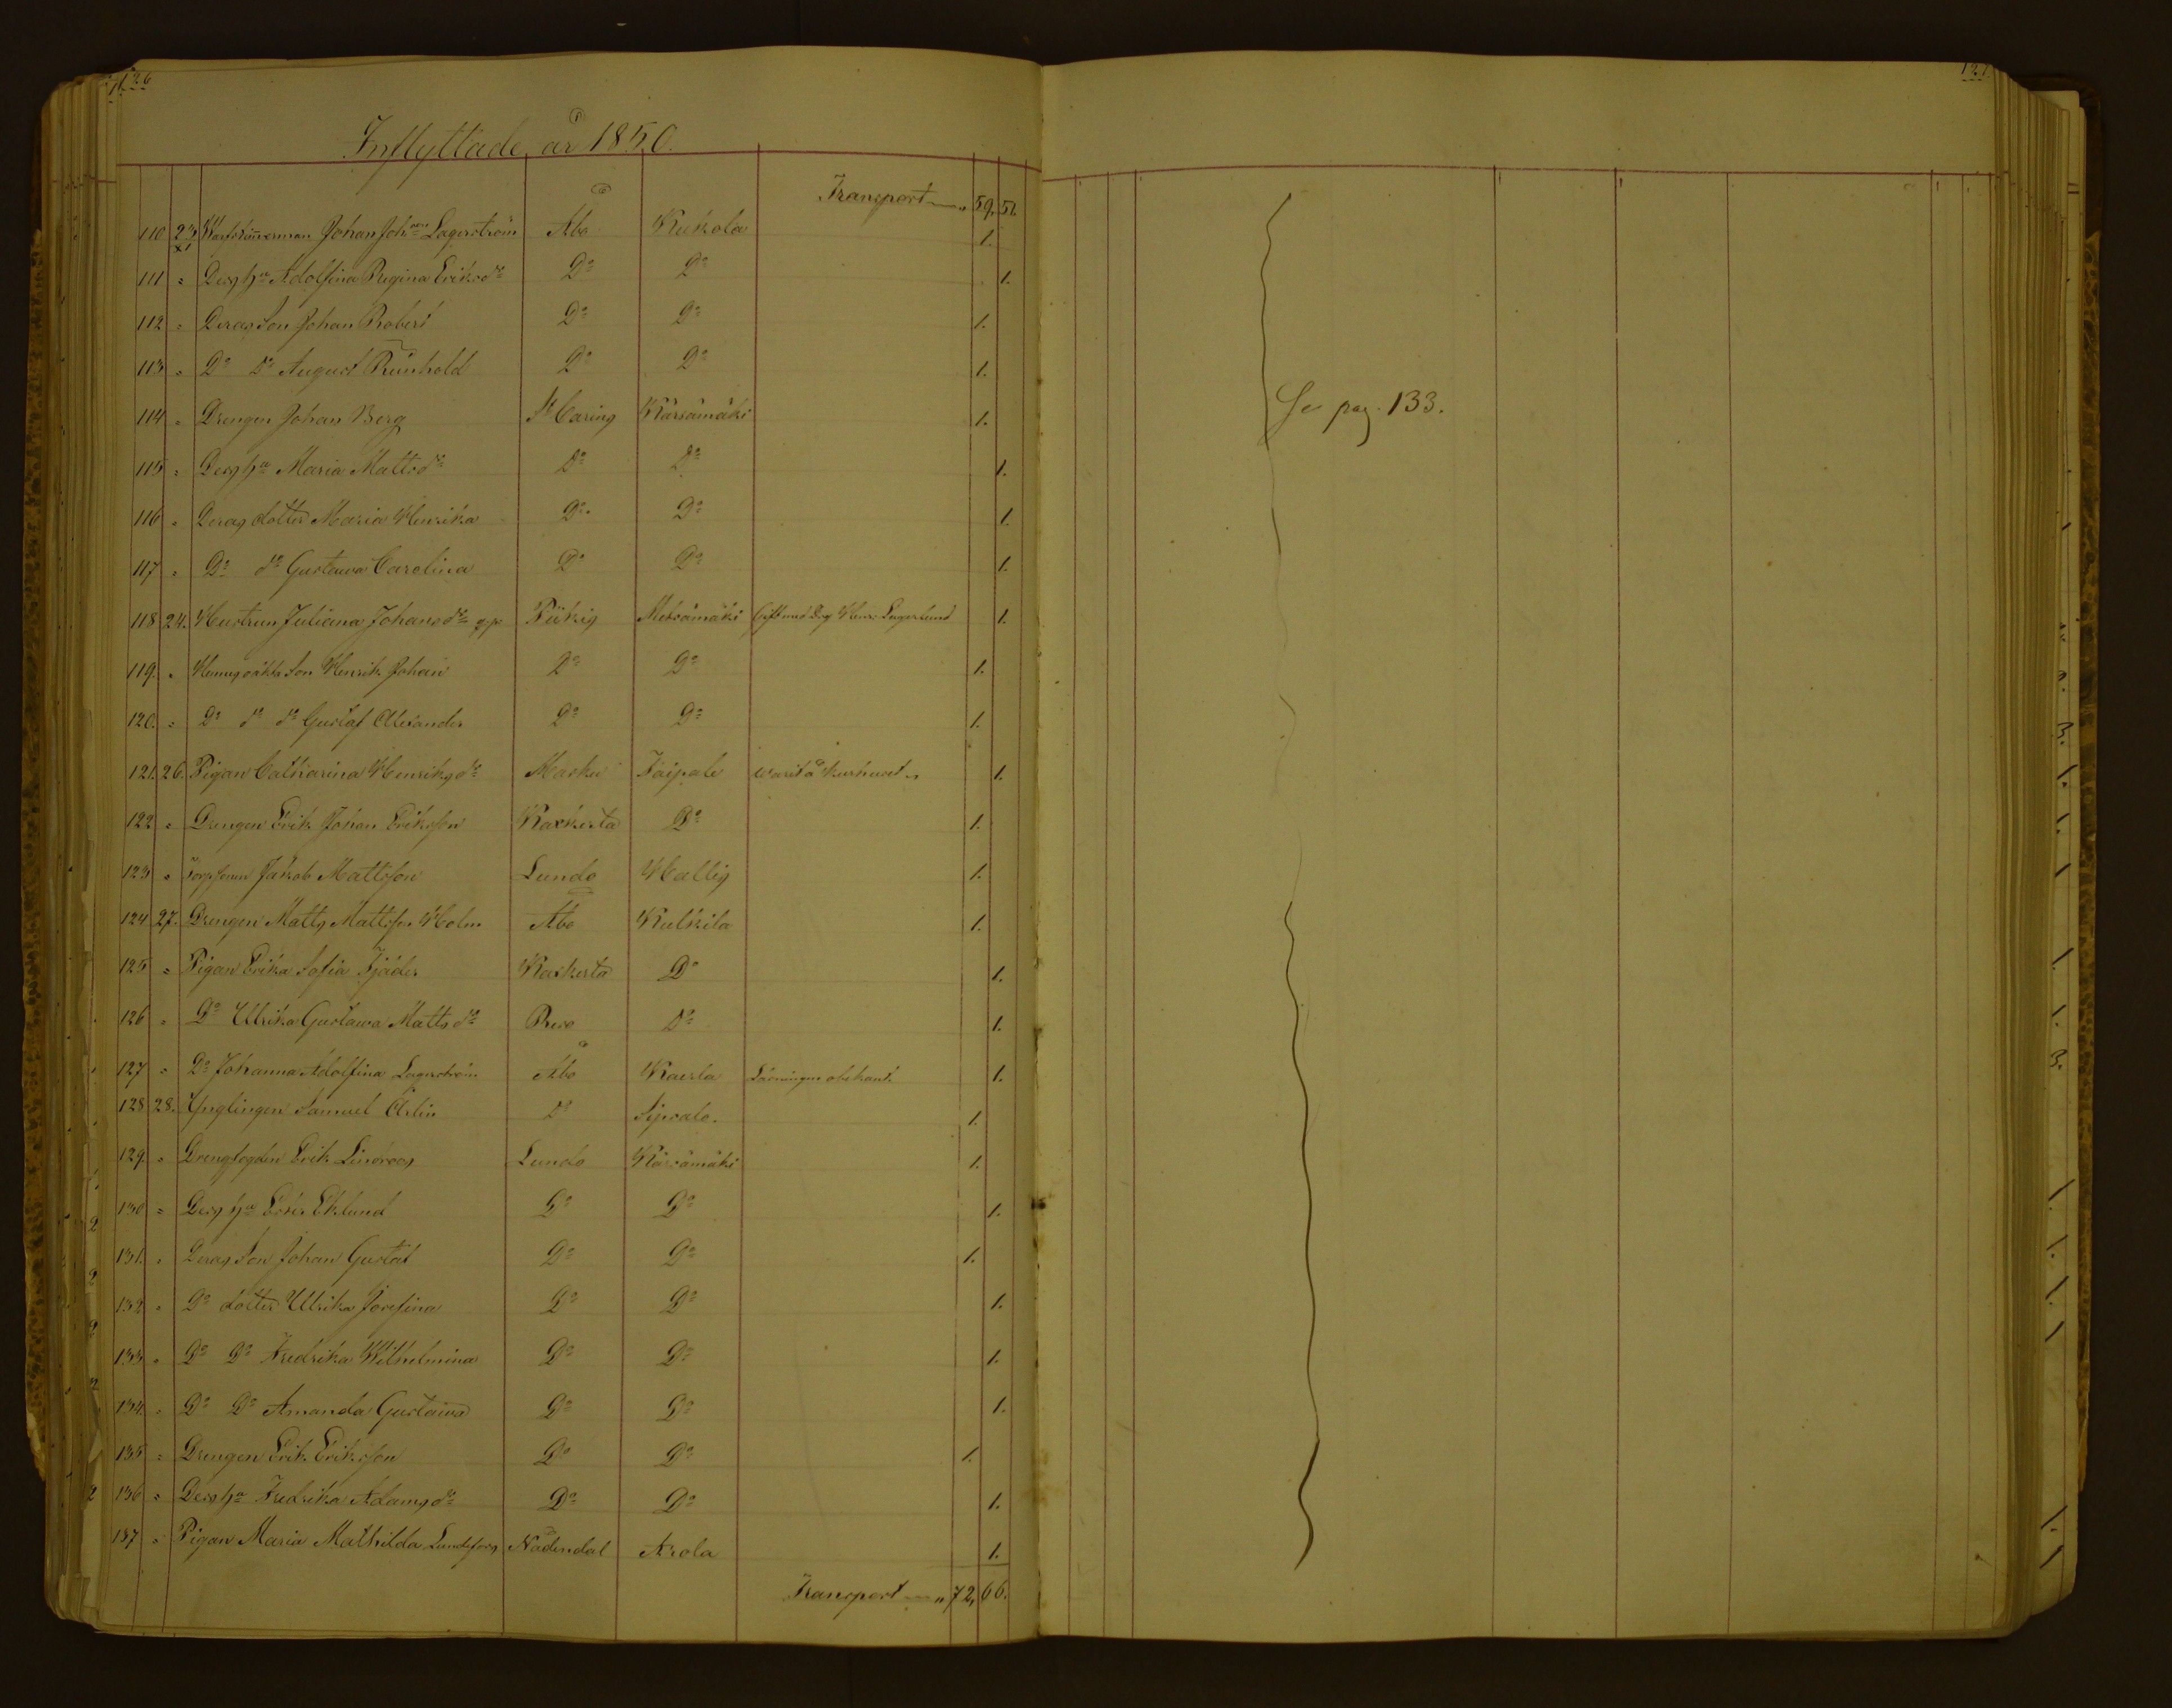 126
Inflyttade år 1850.
Transport — " 59. 51.
110 23/XI Johan Joh:son Lagerström Åbo Kukola 1.
111 " Des h:u Adolfina Regina Eriksd:r D:o D:o 1.
112 " Deras Son Johan Robert D:o D:o 1.
113 " D:o d:o August Reinhold D:o D:o 1.
114 " Drengen Johan Berg S:t Karins Kärsämäki 1.
115 " Des h:u Maria Mattsd:r D:o D:o 1.
116 " Deras dotter Maria Henrika D:o D:o 1.
117 " D:o d:o Gustawa Carolina D:o D:o 1.
118 24. Hustrun Juliana Johansd:r Piikis Metsämäki Gift med Dr. Henr. Lagerlund 1.
119. " Hennes äkta Son Henrik Johan D:o D:o 1.
120. " D:o d:o d:o Gustaf Alexander D:o D:o 1.
121. 26. Pigan Catharina Henriksd:r Masku Taipale warit å kurhuset 1.
122 " Drengen Erik Johan Eriksson Kaxkerta D:o 1.
123 " Jakob Mattsson Lundo Hallis 1.
124 27. Drengen Matts Mattsson Holm Åbo Kulkila 1.
125 " Pigan Erika Sofia Fjäder Kaskerta D:o 1.
126 " D:o Ulrika Gustawa Mattsd:r Reso D:o 1.
127 " D:o Johanna Adolfina Lagerström Åbo Kaerla Läsningen obekant 1.
128 28. Ynglingen Samuel D:o 1.
129. " Drengfogden Erik Lindroos Lundo Kärsämäki 1.
130 " Des h:u Eklund D:o D:o 1.
131. " Deras Son Johan Gustaf D:o D:o 1.
132 " D:o dotter Ulrika Josefina D:o D:o 1.
133 " D:o D:o Fredrika Wilhelmina D:o D:o 1.
134. " D:o D:o Amanda Gustawa D:o D:o 1.
135 " Drengen Erik Eriksson D:o D:o 1.
136 " Des h:u Fredrika Adamsd:r D:o D:o 1.
137 " Pigan Maria Mathilda Lundfors Nådendal Arola 1.
Transport — " 72, 66.
127
Se pag. 133.